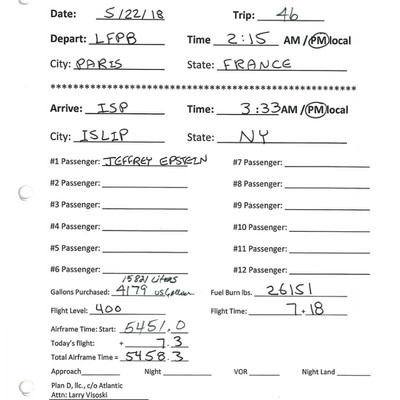 Date: 5/22/18 Trip: 46
Depart: LFPB Time 2:15 AM / PM local
City: PARIS State: FRANCE
************************************************
Arrive: ISP Time: 3:33 AM / PM local
City: ISLIP State: NY
#1 Passenger: JEFFREY EPSTEIN #7 Passenger:
#2 Passenger: #8 Passenger:
#3 Passenger: #9 Passenger:
#4 Passenger: #10 Passenger:
#5 Passenger: #11 Passenger:
#6 Passenger: #12 Passenger:
15821 Liters
Gallons Purchased: 4179 US Gallons Fuel Burn lbs. 26151
Flight Level: 400 Flight Time: 7+18
Airframe Time: Start: 5451.0
Today's flight: + 7.3
Total Airframe Time = 5458.3
Approach Night VOR Night Land
Plan D, llc., c/o Atlantic
Attn: Larry Visoski